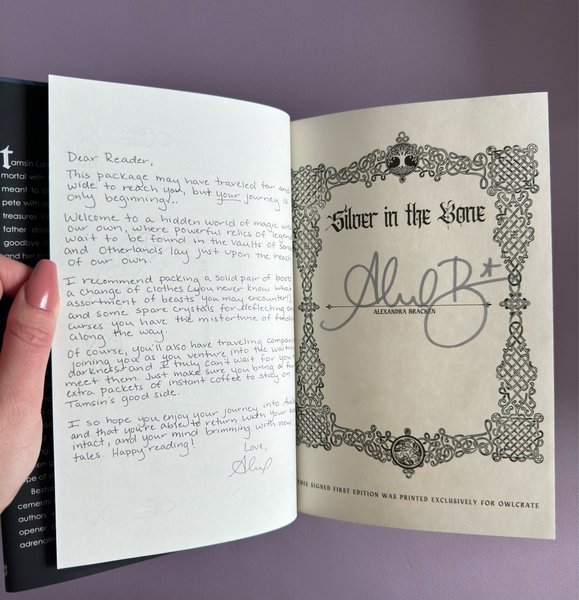 tamsin
mortal with
meant to b
pete with s
treasures
father dis
goodbye
and her
Bestse
cements
authors
opener
adrenalin
Dear Reader,
This package may have traveled far and
wide to reach you, but your journey is
only beginning...
Welcome to a hidden world of magic with
our own, where powerful relics of legend
wait to be found in the vaults of
and Otherlands lay just upon the
of our own.
I recommend packing a solid pair of boots
a change of clothes (you never know what
assortment of beasts you may encounter!),
and some spare crystals for deflecting
curses you have the misfortune of
along the way.
Of course, you'll also have traveling compan
joining you as you venture into the
darkness and I truly can't wait for you
meet them. Just make sure you bring a
extra packets of instant coffee to stay on
Tamsin's good side.
I so hope you enjoy your journey into
and that you're able to return with your
intact, and your mind brimming with new
tales. Happy reading!
Love,
Silver in the Bone
ALEXANDRA BRACKEN
THIS SIGNED FIRST EDITION WAS PRINTED EXCLUSIVELY FOR OWLCRATE